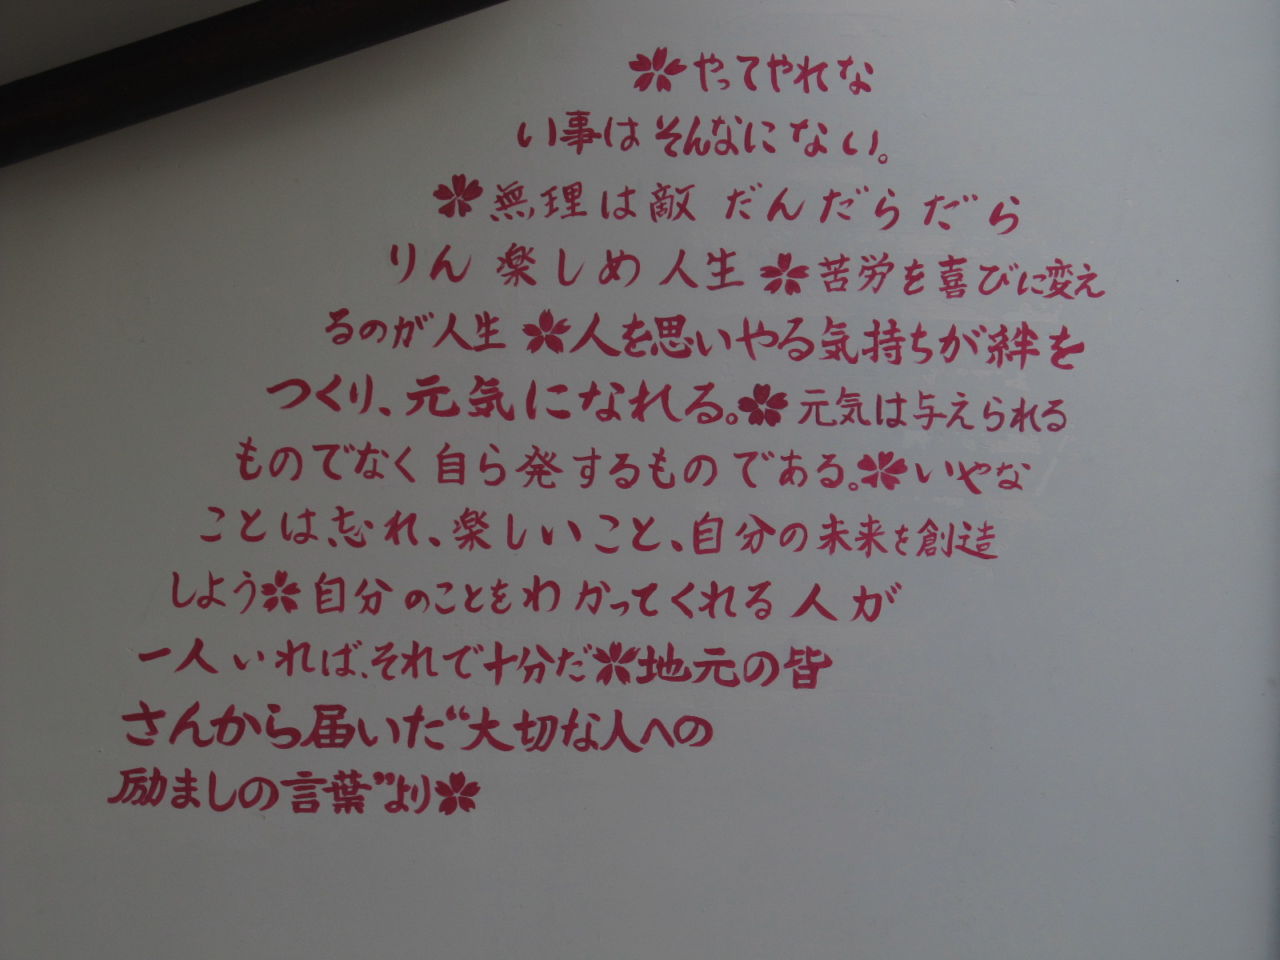 やってやれな
い事はそんなにない。
無理は敵 だんだらだら
りん 楽しめ 人生 苦労を喜びに変え
るのが人生 人を思いやる気持ちが絆を
つくり、元気になれる。元気は与えられる
ものでなく自ら発するものである。いやな
ことは、忘れ、楽しいこと、自分の未来を創造
しよう 自分のことをわかってくれる人が
一人いれば、それで十分だ 地元の皆
さんから届いた“大切な人への
励ましの言葉”より